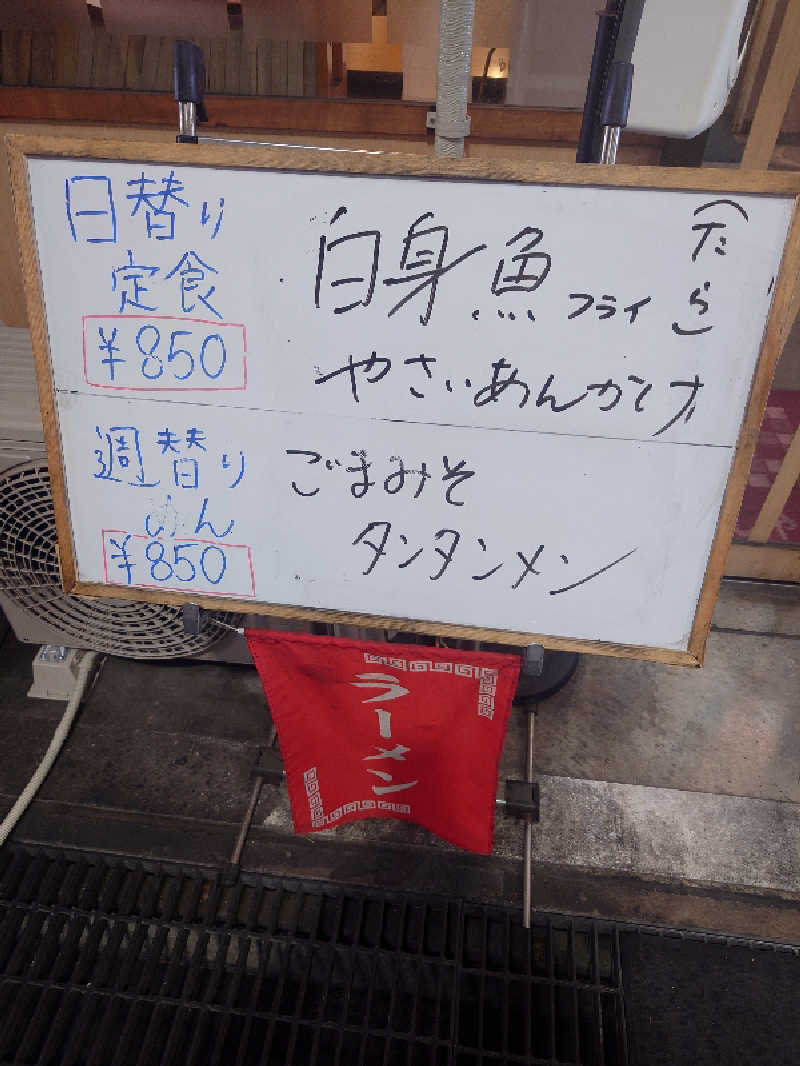 日替り
定食
¥850
白身魚フライ
(たら)
やさいあんかけ
週替り
めん
¥850
ごまみそ
タンタンメン
ラーメン